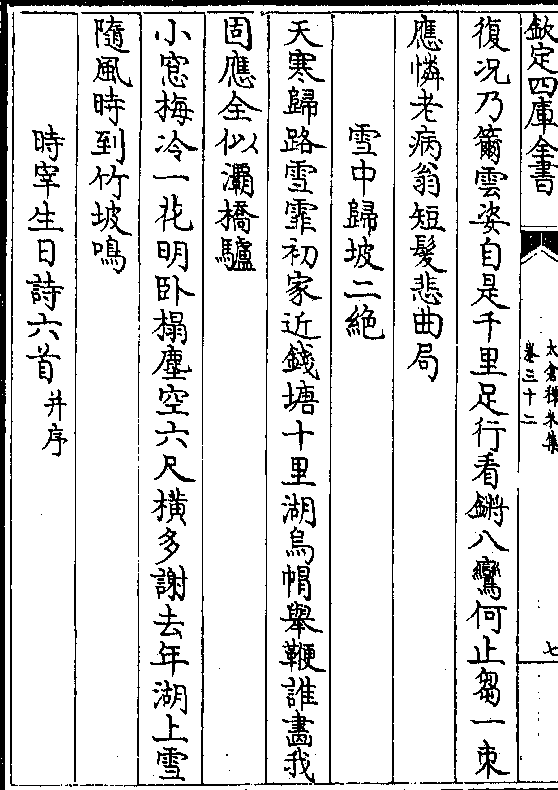 欽定四庫全書
太倉稊米集
卷三十二
七
復况乃籋雲姿自是千里足行看鏘八鸞何止芻一束
應憐老病翁短髮悲曲局
雪中歸坡二絶
天寒歸路雪霏初家近錢塘十里湖烏帽舉鞭誰畫我
固應全似灞橋驢
小窓梅冷一花明卧榻塵空六尺横多謝去年湖上雪
隨風時到竹坡鳴
時宰生日詩六首并序